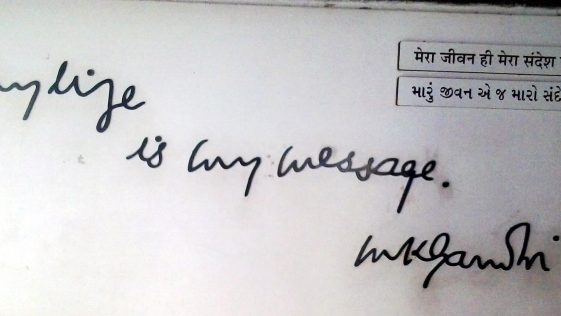 my life
is my message.
mkGandhi
मेरा जीवन ही मेरा संदेश
મારું જીવન એ જ મારો સંદે